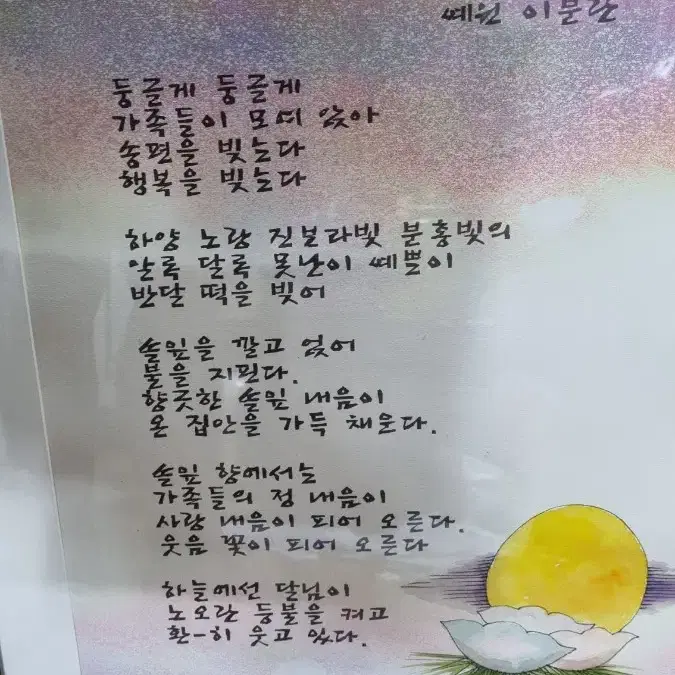 예원 이문란
둥글게 둥글게
가족들이 모여 앉아
송편을 빚는다
행복을 빚는다
하양 노랑 진보라빛 분홍빛의
알록 달록 못난이 예쁠이
반달 떡을 빚어
솔잎을 깔고 얹어
불을 지핀다.
향긋한 솔잎 내음이
온 집안을 가득 채운다.
솔잎 향에서는
가족들의 정 내음이
사랑 내음이 피어 오른다.
웃음 꽃이 피어 오른다
하늘에선 달님이
노오란 등불을 켜고
환-히 웃고 있다.